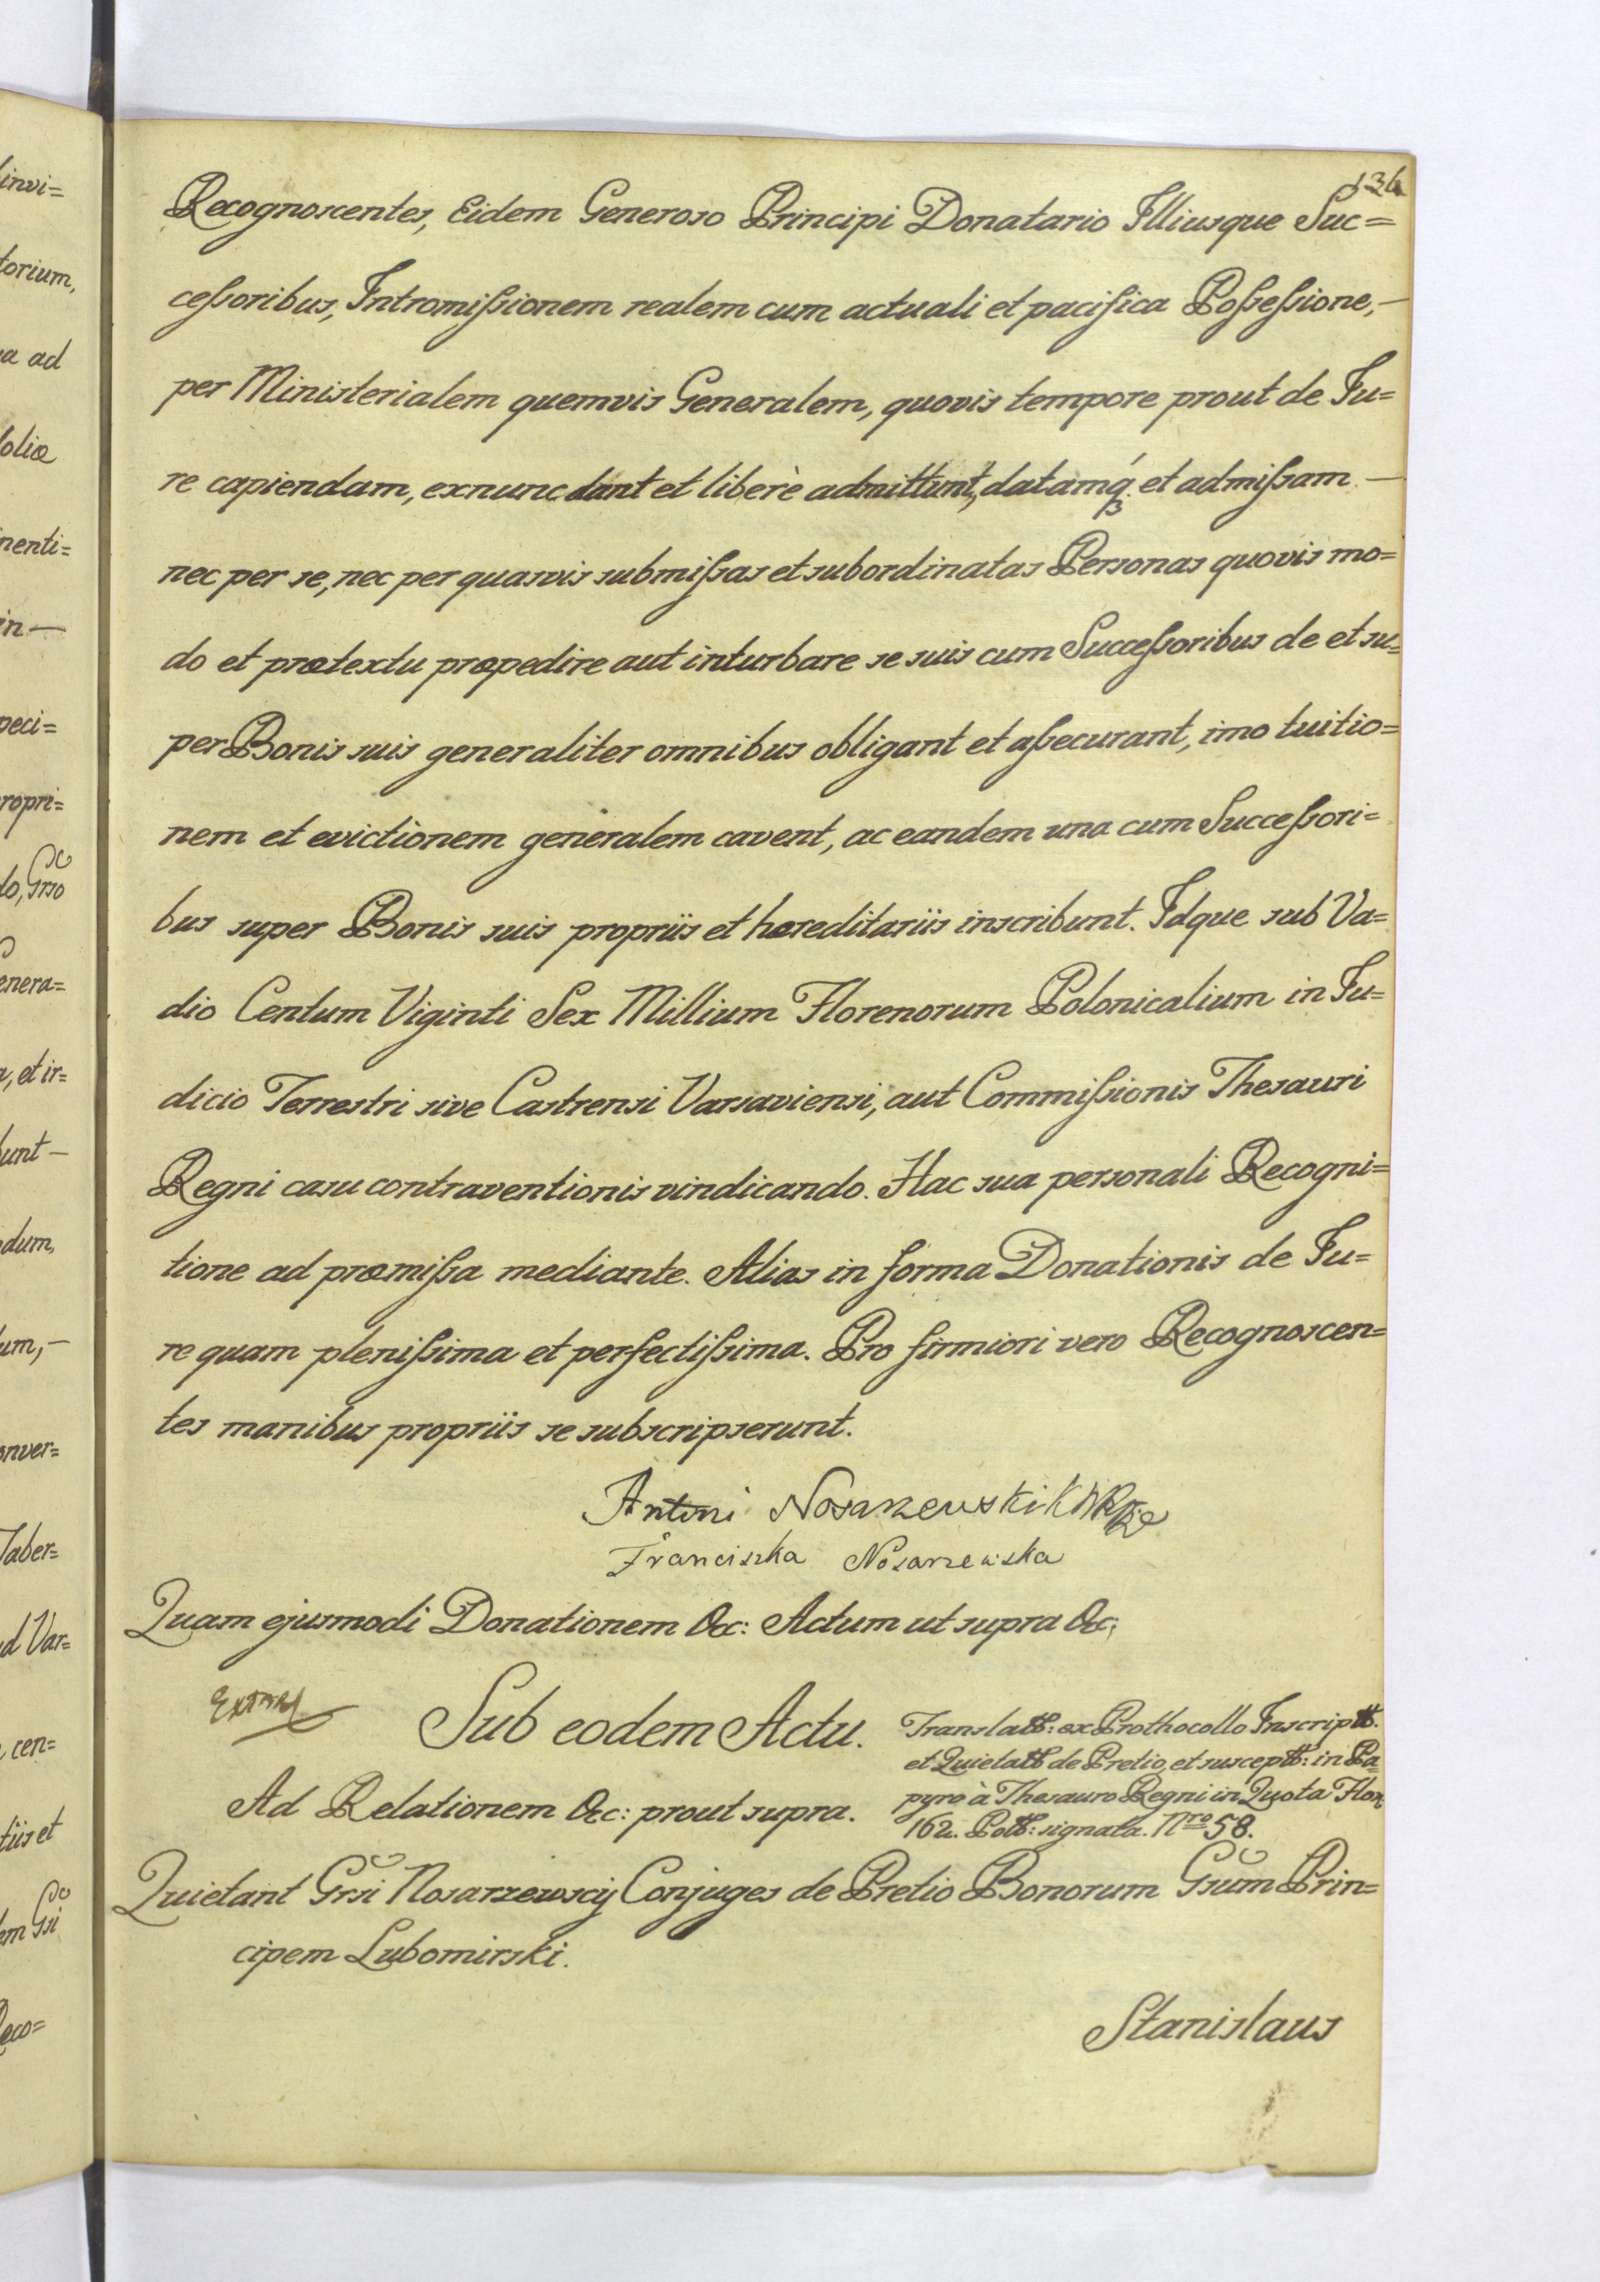 136
Recognoscentes, Eidem Generoso Principi Donatario Illiusque Suc=
ceſsoribus, Intromiſsionem realem cum actuali et pacifica Poſseſsione,—
per Ministerialem quemvis Generalem, quovis tempore prout de Ju=
re capiendam, exnunc dant et liberè admittunt, datamq́ꝫ et admiſsam —
nec per se, nec per quasvis submiſsas et subordinatas Personas quovis mo=
do et prætextu præpedire aut inturbare se suis cum Succeſsoribus de et su=
per Bonis suis generaliter omnibus obligant et aſsecurant, imo tuitio=
nem et evictionem generalem cavent, ac eandem una cum Succeſsori=
bus super Bonis suis propriis et hæreditariis inscribunt. Idque sub Va=
dio Centum Viginti Sex Millium Florenorum Polonicalium in Ju=
dicio Terrestri sive Castrensi Varsaviensi, aut Commiſsionis Thesauri
Regni casu contraventionis vindicando. Hac sua personali Recogni=
tione ad præmiſsa mediante. Alias in forma Donationis de Ju=
re quam pleniſsima et perfectiſsima. Pro firmiori vero Recognoscen=
tes manibus propriis se subscripserunt.
Antoni Nosarzewski
Franciszka Nosarzewska
Quam ejusmodi Donationem &c: Actum ut supra &c;
Sub eodem Actu.
Ad Relationem &c: prout supra.
et Quietatt de Pretio, et suscept: in Pa=
pyro à Thesauro Regni in Quota Flor
162. signata. Nro 58.
Quietant Grsi Nosarzewscÿ Conjuges de Pretio Bonorum Gsum Prin=
cipem Lubomirski.
Stanislaus